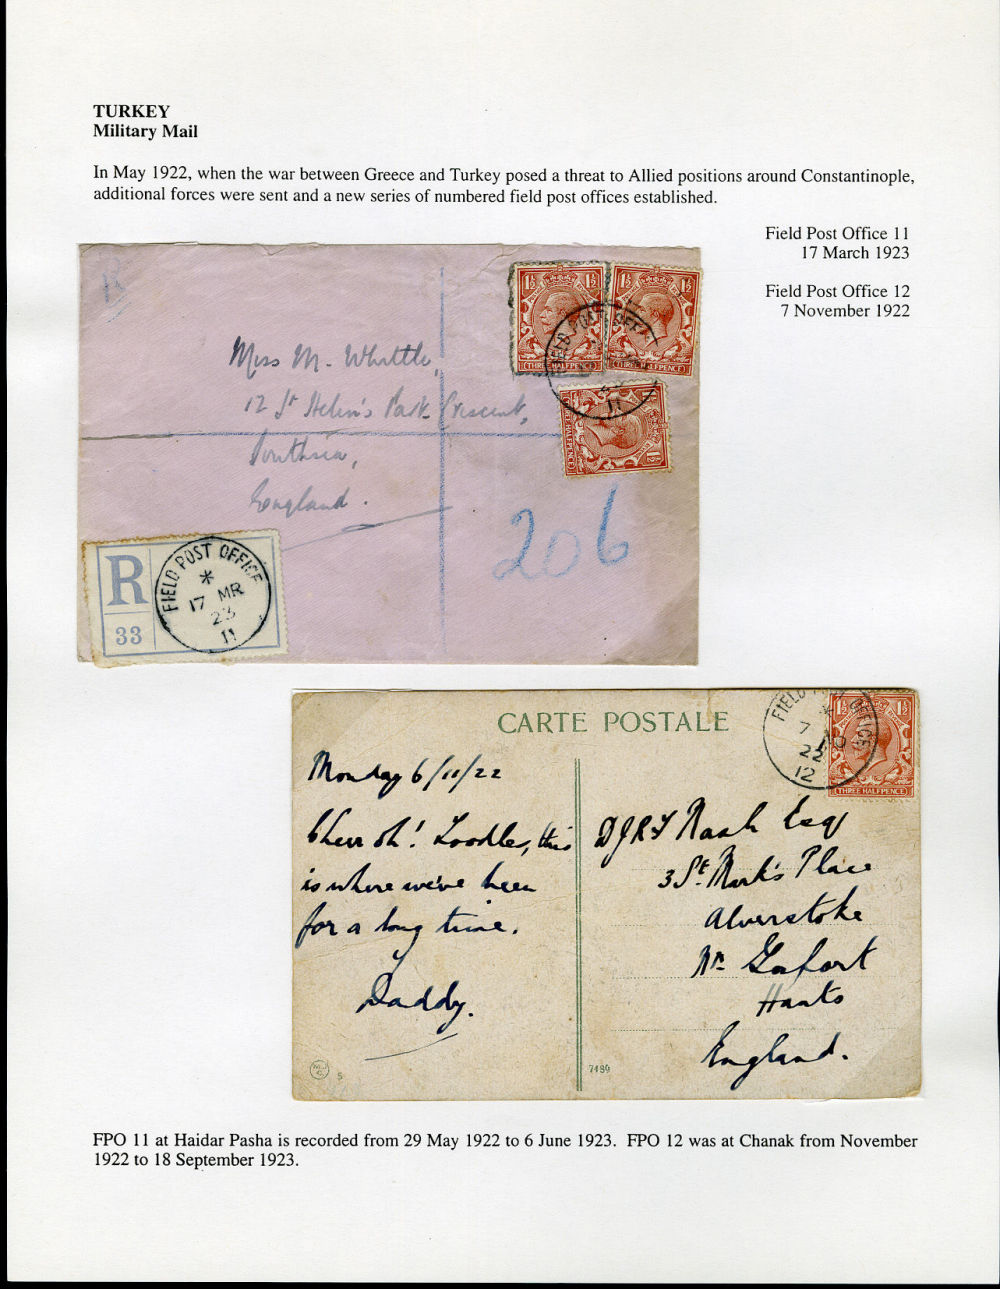 TURKEY
Military Mail
In May 1922, when the war between Greece and Turkey posed a threat to Allied positions around Constantinople,
additional forces were sent and a new series of numbered field post offices established.
Field Post Office 11
17 March 1923
Field Post Office 12
7 November 1922
R
1½ 1½
1½ 1½
THREE HALFPENCE
THREE HALFPENCE
FIELD POST OFFICE
23
11
1½
THREE HALFPENCE
Miss M. Whittle,
12 St Helen's Park Crescent,
Southsea,
England.
206
R
33
FIELD POST OFFICE
*
17 MR
23
11
CARTE POSTALE
FIELD POST OFFICE
*
7 NO
22
12
1½ 1½
THREE HALFPENCE
Monday 6/11/22
Cheer oh! Toodles, this
is where we've been
for a long time.
Daddy.
Nash Esq
3 St. Mark's Place
Alverstoke
Nr. Gosport
Hants
England.
5
7489
FPO 11 at Haidar Pasha is recorded from 29 May 1922 to 6 June 1923. FPO 12 was at Chanak from November
1922 to 18 September 1923.